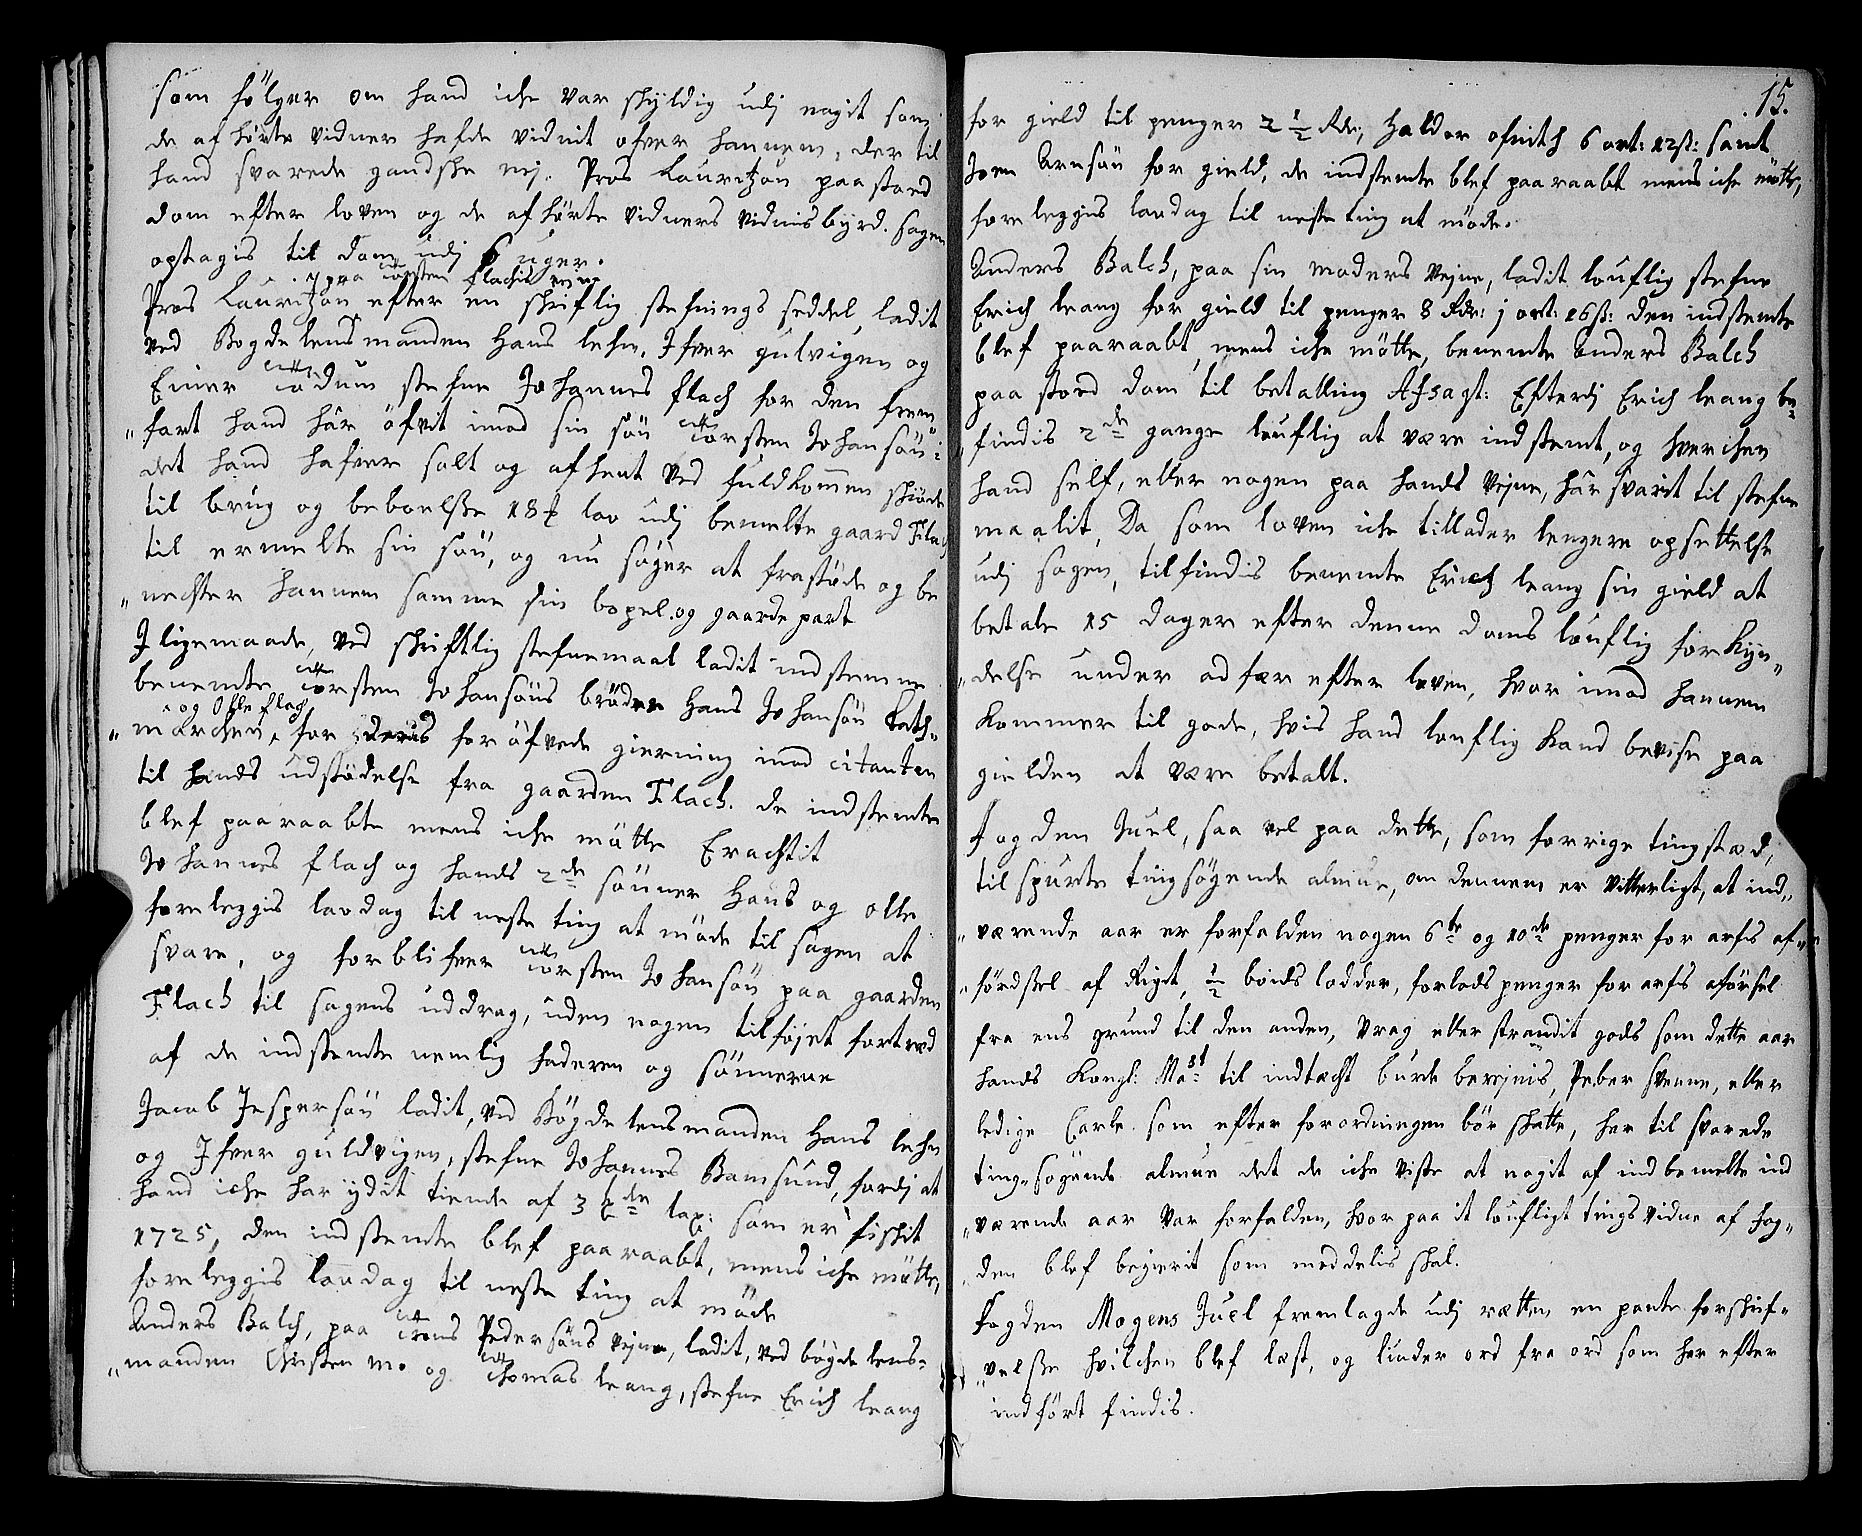 som fölger om hand iche var skyldig udj nogit som
de afhörte vidner hafde vidnit ofver hannem, der til
hand svarede gandske nej. Pros Lauritzøn paastoed
dom efter loven og de afhörte vidners vidnisbyrd. sagen
optagis til dom udj 6 uger.
paa Torsten Flachis vejne
Pros Lauritzøn efter en skriftlig stefnings seddel, ladit
ved Bogdelensmanden Hans Lehn, Ifver gulvigen og
Einer stefne Johannes Flach for den frem„
„fart hand hâr öfvit imod sin sön Torsten Johansön:
det hand hafver solt og afhent ved fuldkommen skiöde
til brug og beboelsse 18 lav udj bemelte gaard Flach
til ermelte sin sön, og nu söger at frastöde og be
„nechter hannem samme sin bopel. og gaarde part
Jligemaade, ved skriftlig stefnemaal ladit indstemne
benemte Torsten Johansöns brödre Hans Johansön
og Olle Flach
„march en, for deris foröfvede gierning imod citanten
til hands udstödelse fra gaarden Flach. de indstemte
blef paaraabte mens iche mötte Erachtit
Johannes Flach og hands 2de sönner Hans og olle
foreleggis lavdag til neste ting at möde til sagen at
svare, og forblifver Torsten Johansön paa gaarden
Flach til sagens uddrag, uden nogen tilföjet fortræd
af de indstemte nemlig faderen og sönnerne
Jacob Jespersön ladit, ved Bögdelensmanden Hans Lehn
og Ifver guldvigen, stefne Johannes Bamsund, fordj at
hand iche har ydit tiende af 3 lax: som er fiskit
1725, den indstemte blef paaraabt, mens iche mötte,
foreleggis laudag til neste ting at möde
Anders Balch, paa Trons Pedersöns vejne, ladit, ved bögdelens=
„manden Christen mo og Thomas leang, stefne Erich leang
15.
for gield til penger 2 1/2 Rdr, Haldor ofnith 6 ort: 12ß: samt
Joen Arnsön for gield, de indstemte blef paaraabt mens iche mötte,
foreleggis lavdag til neste ting at möde.
Anders Balch, paa sin moders vejne, ladit louflig stefne
Erich leang for gield til penger 8 Rdr: j ort: 16ß: den indstemte
blef paaraabt, mens iche mötte, benemte Anders Balch
paastoed dom til betalling Afsagt: Efterdj Erich leang be„
„findis 2de gange louflig at være indstemt, og hverchen
hand self, eller nogen paa hands vejne, hâr svarit til stefne
maalit, Da, som loven iche tillader lengere opsettelse
udj sagen, tilfindis benemte Erich leang sin gield at
betale 15 dager efter denne doms louflig forkyn„
„delse under adfær efter loven, hvor imod hannem
kommer til gode, hvis hand louflig kand bevise paa
gielden at være betalt.
Fogden Juel, saa vel paa dette, som forrige tingsted,
til spurte tingsögende almue, om dennem er vitterligt, at ind„
„værende aar er forfalden nogen 6te og 10de penger for arfs af„
„fördsel af Riget, 1/2 boids lodder, forlods penger for arfs aförsel
fra ens grund til den anden, vrag eller strandit gods som dette aar
hands Kongl: Maÿst til indtæcht burde beregnis, Peber svenne, eller
ledige Carle som efter forordningen bör skatte, her til svarede
ting=sögende almue det de iche viste at nogit af indbemelte ind
„værende aar var forfalden, hvor paa it loufligt tingsvidne af fog„
„den blef begierit som meddelis skal.
Fogden Mogens Juel fremlagde udj rætten en pante forskrif=
„velsse hvilchen blef læst, og liuder ord fra ord som her efter
indfört findis.